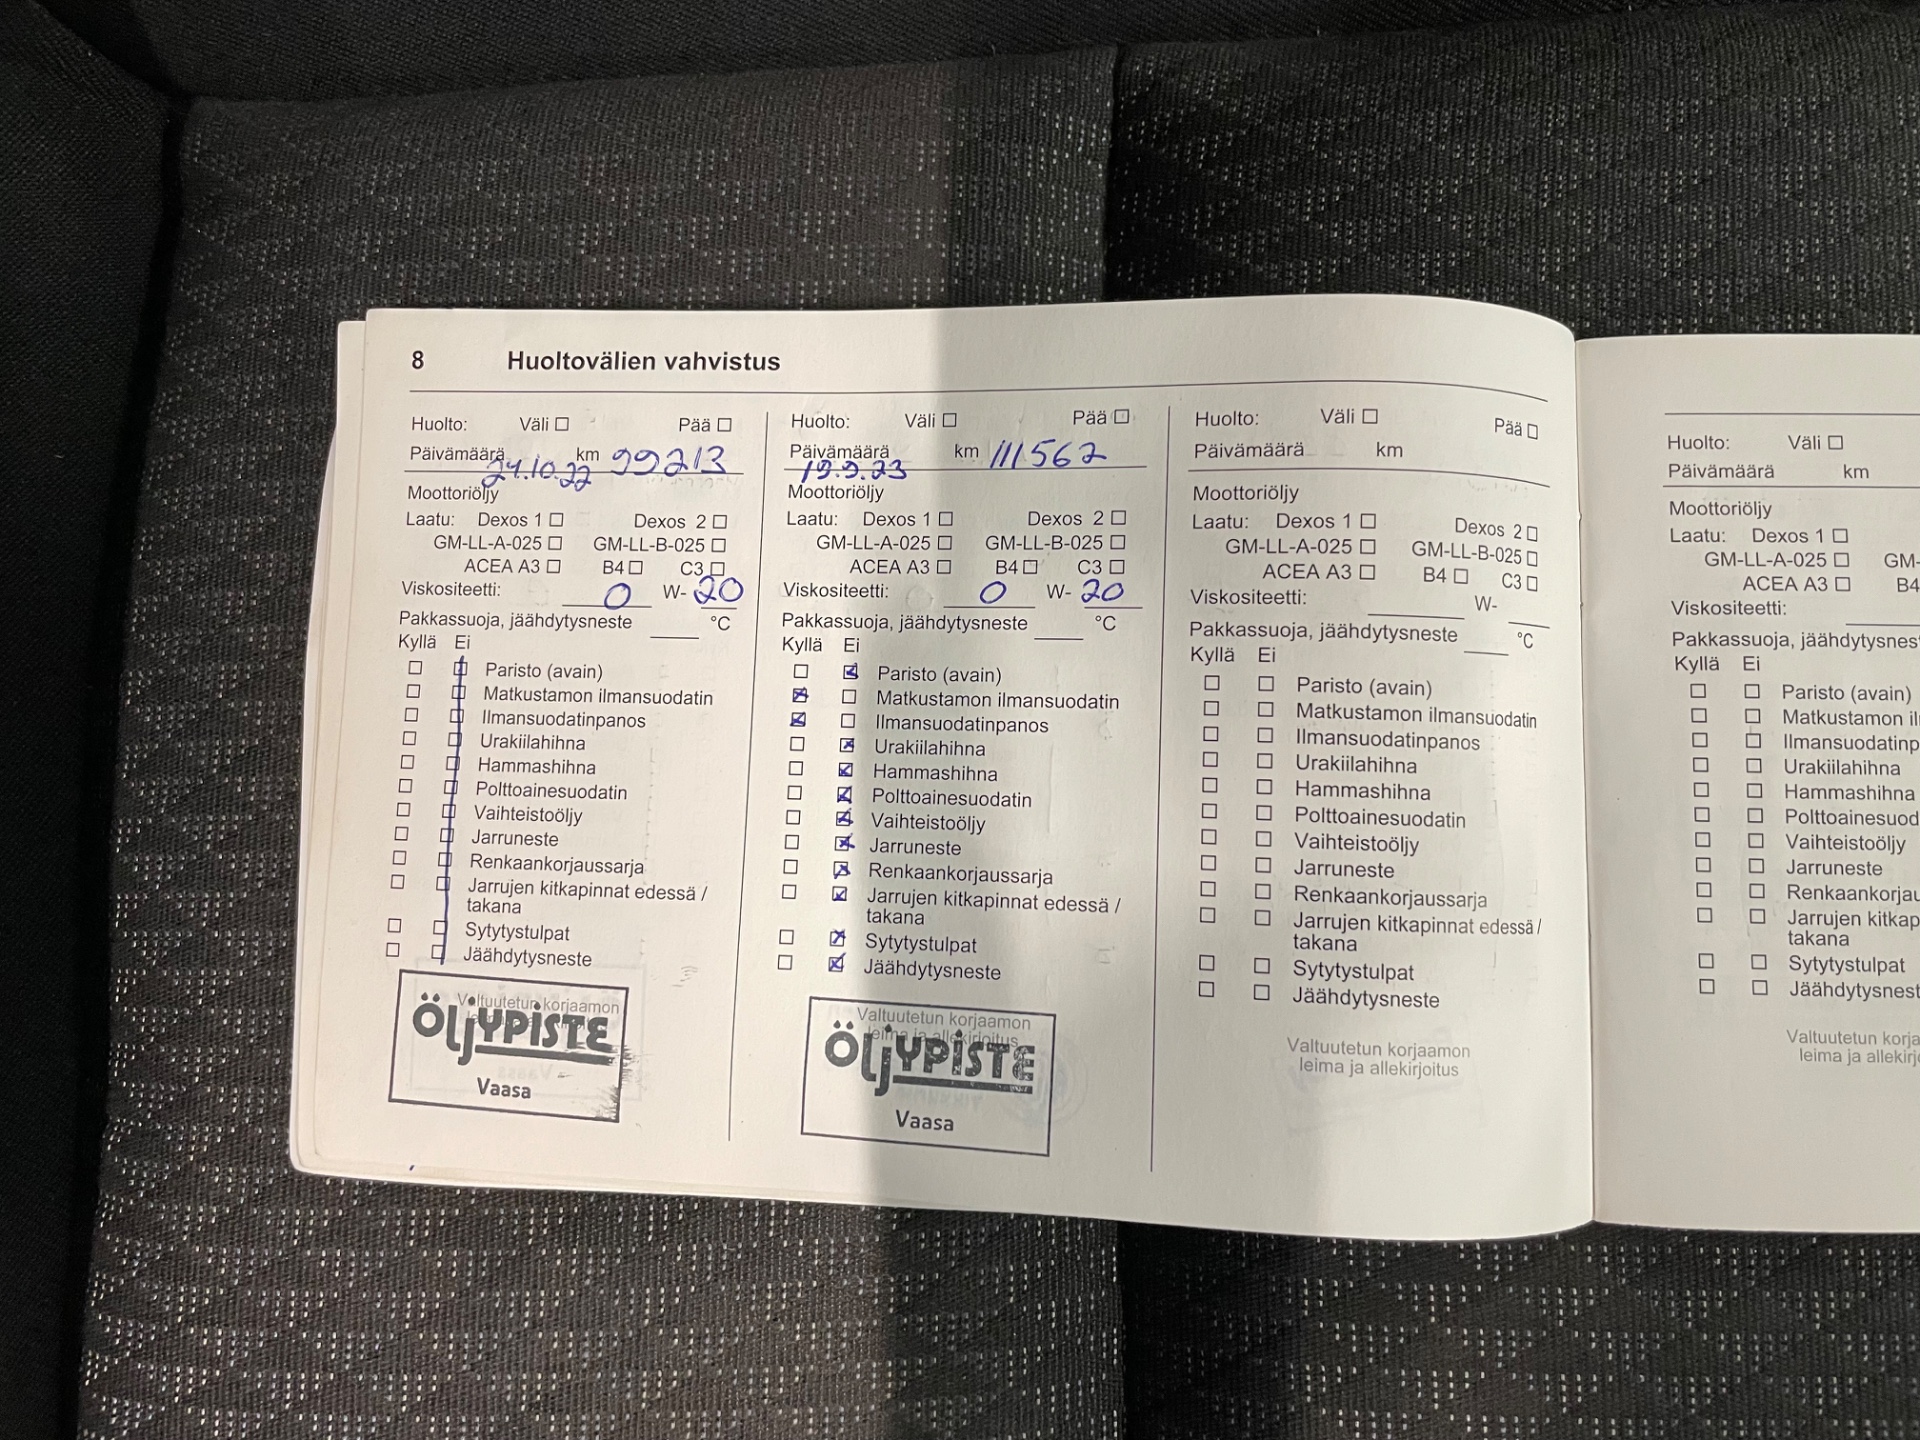 8 Huoltovälien vahvistus
Huolto: Väli ☐ Pää ☐
Päivämäärä 24.10.22 km 99213
Moottoriöljy
Laatu: Dexos 1 ☐ Dexos 2 ☐
GM-LL-A-025 ☐ GM-LL-B-025 ☐
ACEA A3 ☐ B4 ☐ C3 ☐
Viskositeetti: 0 W- 20
Pakkassuoja, jäähdytysneste ____ °C
Kyllä Ei
Paristo (avain)
Matkustamon ilmansuodatin
Ilmansuodatinpanos
Urakiilahihna
Hammashihna
Polttoainesuodatin
Vaihteistoöljy
Jarruneste
Renkaankorjaussarja
Jarrujen kitkapinnat edessä /
takana
Sytytystulpat
Jäähdytysneste
Valtuutetun korjaamon
ÖLJYPISTE
Vaasa
Huolto: Väli ☐ Pää ☐
Päivämäärä 19.9.23 km 111562
Moottoriöljy
Laatu: Dexos 1 ☐ Dexos 2 ☐
GM-LL-A-025 ☐ GM-LL-B-025 ☐
ACEA A3 ☐ B4 ☐ C3 ☐
Viskositeetti: 0 W- 20
Pakkassuoja, jäähdytysneste ____ °C
Kyllä Ei
☐ ☒ Paristo (avain)
☒ ☐ Matkustamon ilmansuodatin
☒ ☐ Ilmansuodatinpanos
☐ ☒ Urakiilahihna
☐ ☒ Hammashihna
☐ ☒ Polttoainesuodatin
☐ ☒ Vaihteistoöljy
☐ ☒ Jarruneste
☐ ☒ Renkaankorjaussarja
☐ ☒ Jarrujen kitkapinnat edessä /
takana
☐ ☒ Sytytystulpat
☐ ☒ Jäähdytysneste
Valtuutetun korjaamon
leima ja allekirjoitus
ÖLJYPISTE
Vaasa
Huolto: Väli ☐ Pää ☐
Päivämäärä km
Moottoriöljy
Laatu: Dexos 1 ☐ Dexos 2 ☐
GM-LL-A-025 ☐ GM-LL-B-025 ☐
ACEA A3 ☐ B4 ☐ C3 ☐
Viskositeetti: ____ W- ____
Pakkassuoja, jäähdytysneste ____ °C
Kyllä Ei
☐ ☐ Paristo (avain)
☐ ☐ Matkustamon ilmansuodatin
☐ ☐ Ilmansuodatinpanos
☐ ☐ Urakiilahihna
☐ ☐ Hammashihna
☐ ☐ Polttoainesuodatin
☐ ☐ Vaihteistoöljy
☐ ☐ Jarruneste
☐ ☐ Renkaankorjaussarja
☐ ☐ Jarrujen kitkapinnat edessä /
takana
☐ ☐ Sytytystulpat
☐ ☐ Jäähdytysneste
Valtuutetun korjaamon
leima ja allekirjoitus
Huolto: Väli ☐
Päivämäärä km
Moottoriöljy
Laatu: Dexos 1 ☐
GM-LL-A-025 ☐ GM-
ACEA A3 ☐ B4
Viskositeetti:
Pakkassuoja, jäähdytysnest
Kyllä Ei
☐ ☐ Paristo (avain)
☐ ☐ Matkustamon il
☐ ☐ Ilmansuodatinp
☐ ☐ Urakiilahihna
☐ ☐ Hammashihna
☐ ☐ Polttoainesuod
☐ ☐ Vaihteistoöljy
☐ ☐ Jarruneste
☐ ☐ Renkaankorjau
☐ ☐ Jarrujen kitkap
takana
☐ ☐ Sytytystulpat
☐ ☐ Jäähdytysnest
Valtuutetun korja
leima ja allekirj